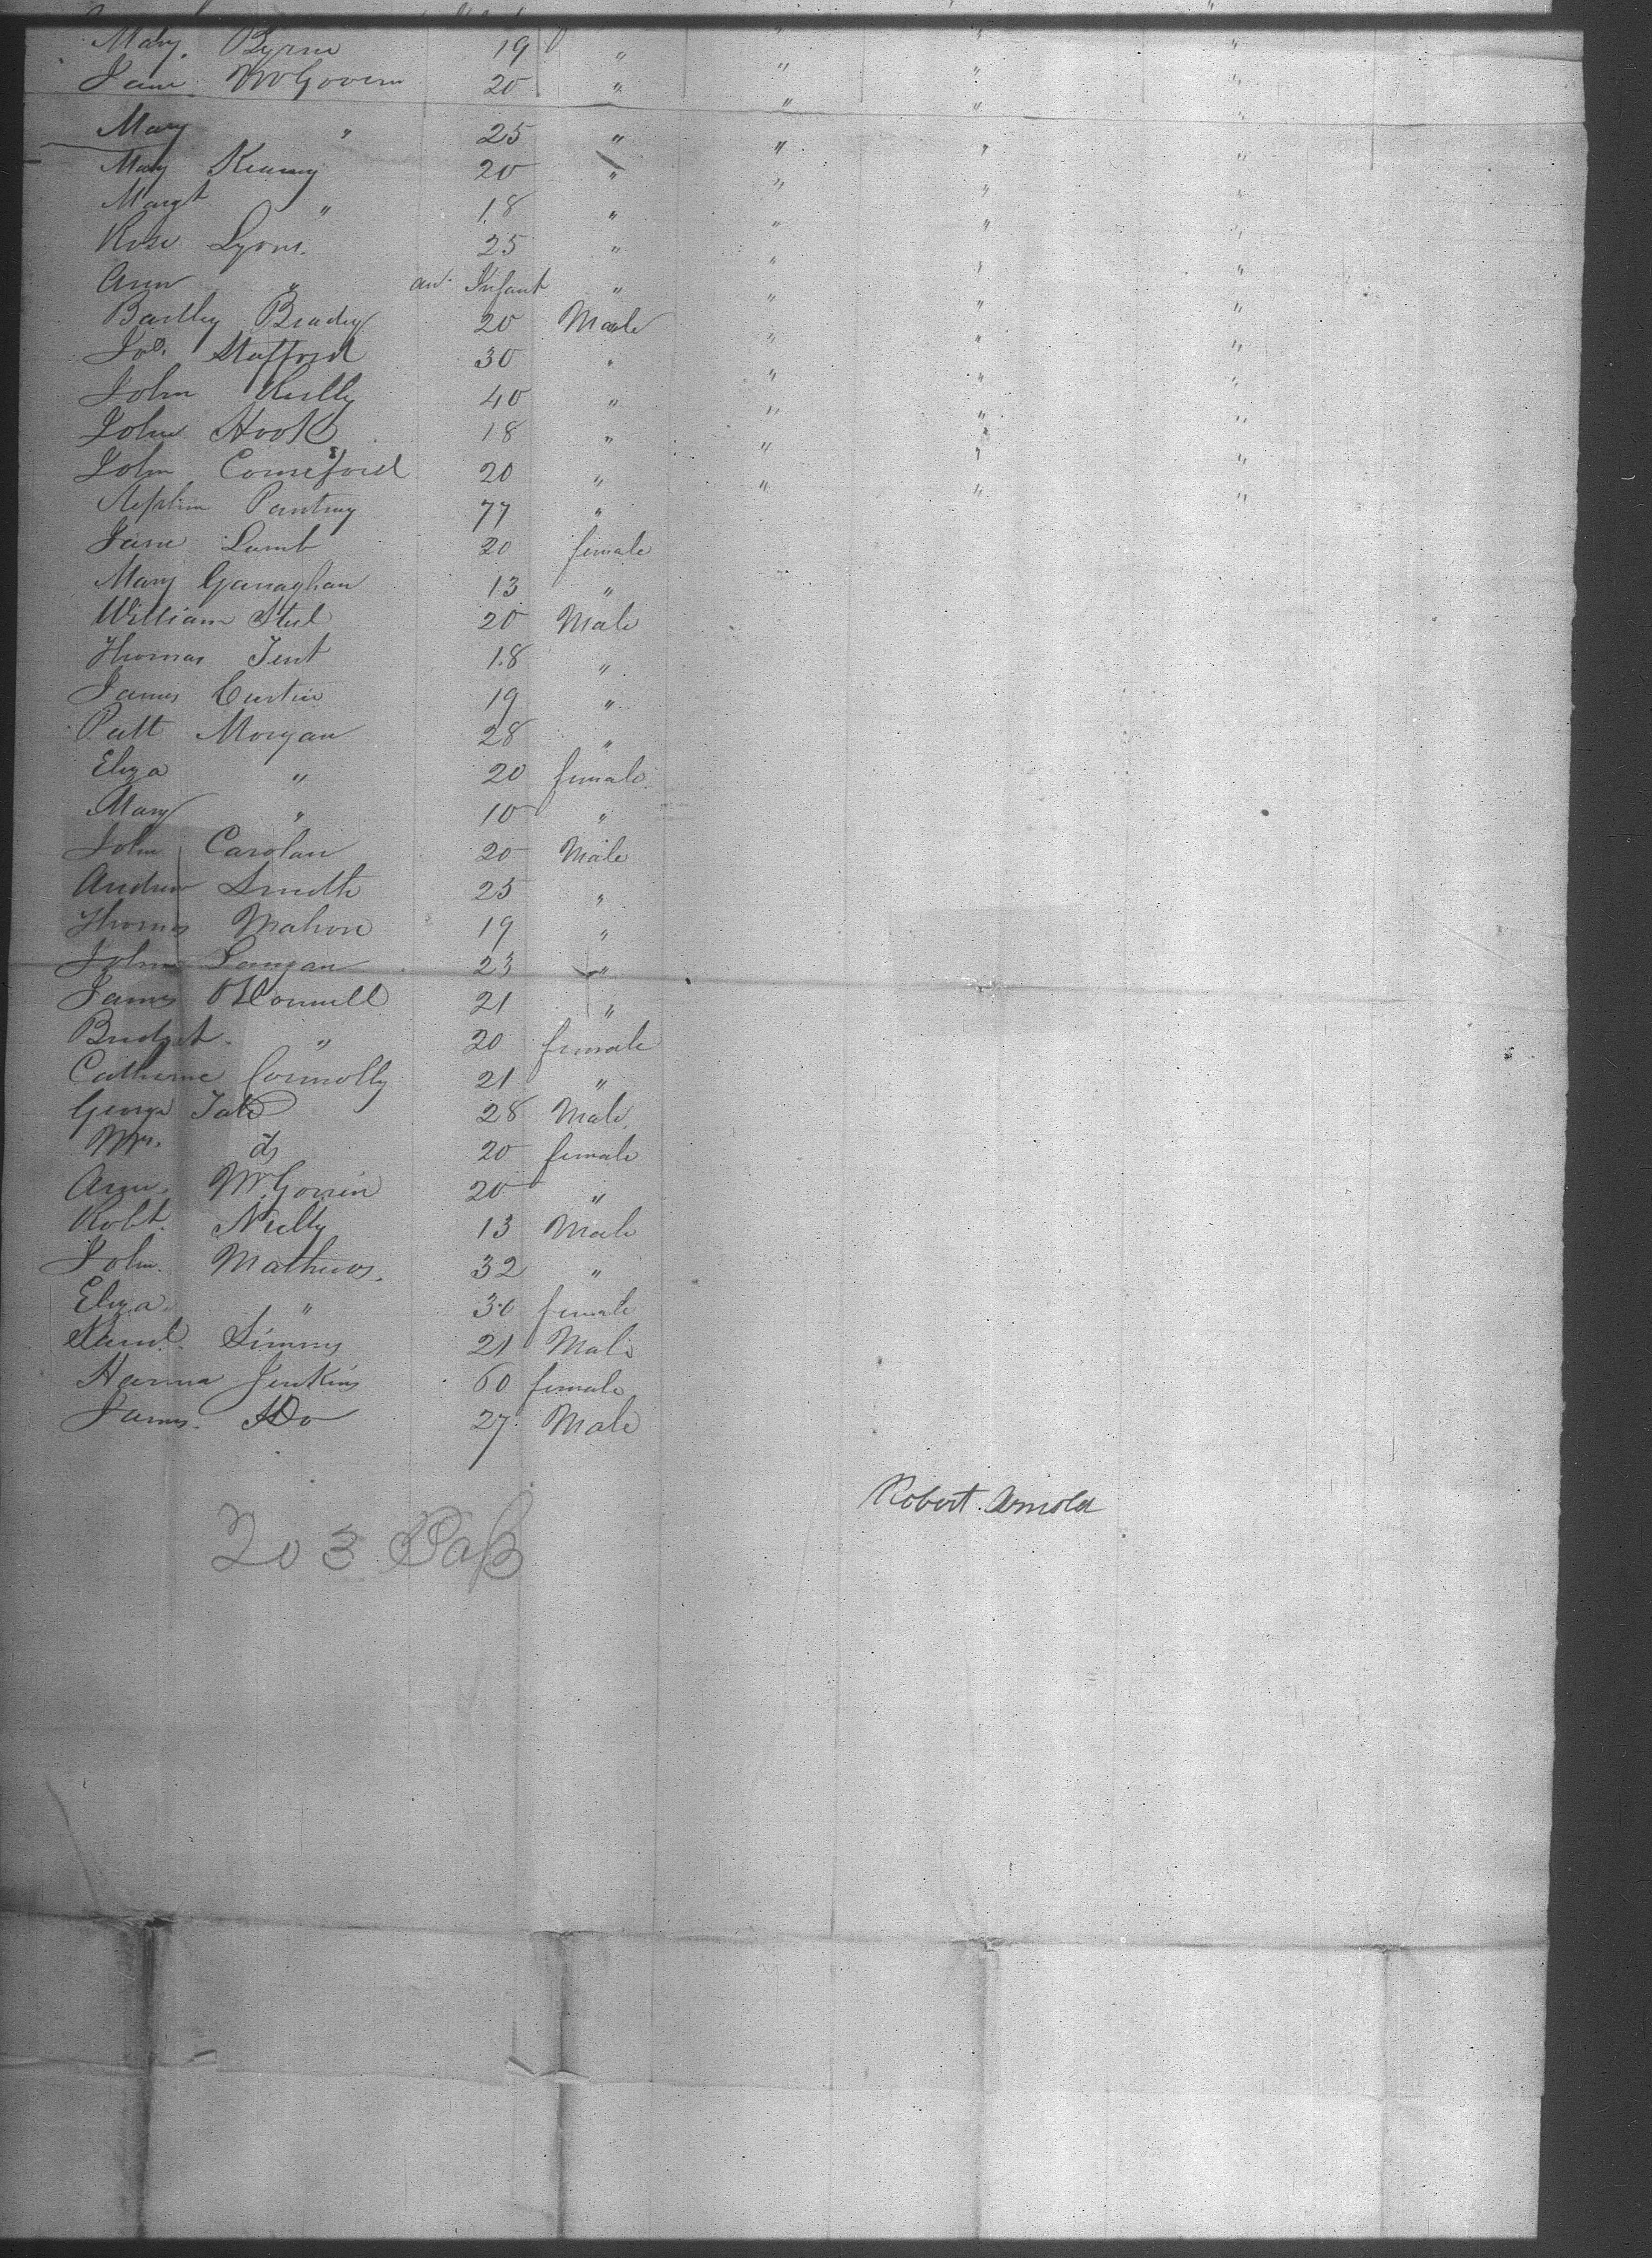 Mary. Byrne 19 " " " "
Jane McGovern 20 " " " "
Mary " 25 " " " "
Mary Kearney 20 " " " "
Margt " 18 " " " "
Rose Lyons. 25 " " " "
Ann " an Infant " " " "
Bartley Brady 20 Male " " "
Jos. Stafford 30 " " " "
John Reilly 40 " " " "
John Hook 18 " " " "
John Comerford 20 " " " "
Stephen 77 "
Jane Lamb 20 female
Mary Ganaghan 13 "
William Steel 20 Male
Thomas Tent 18 "
James Curtin 19 "
Patt Morgan 28 "
Eliza " 20 female
Mary " 10 "
John Carolan 20 Male
Andrew Smith 25 "
Thomas Mahon 19 "
John Langan 23 "
James O'Connell 21 "
Bridget " 20 female
Catherine Connolly 21 "
George Tate 28 Male
Mrs. do 20 female
Ann. 20 "
Robt. Nielly 13 Male
John. Mathews. 32 "
Eliza " 30 female
Saml. Simms 21 Male
Hanna Jenkins 60 female
James. Do 27 Male
Robert. Arnold
203 Pass